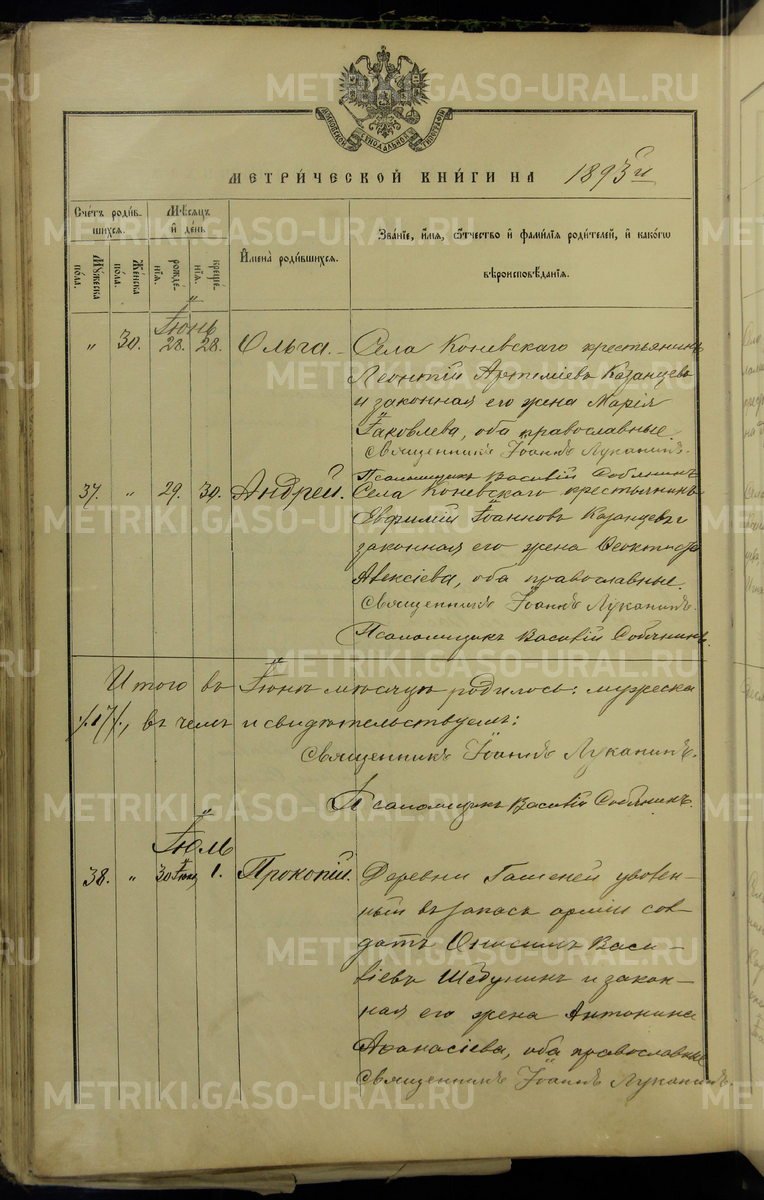 МОСКОВСКОЙ СѴНОДАЛЬНОЙ ТИПОГРАФІИ
МЕТРИ́ЧЕСКОЙ КНИ́ГИ НА 1893 й
Сче́тъ роди́в-
шихся.
Мѣ́сяцъ
и҆ де́нь
И҆мена̀ роди́вшихся.
Зва́нїе, и҆́мя, ѻ҆́тчество и҆ фами́лїя роди́телей, и҆ како́гѡ
вѣроисповѣ́данїя.
Мꙋ́жеска
по́ла.
Же́нска
по́ла.
рожде́-
нїя.
креще́-
нїя.
Іюнь
" 30. 28. 28. Ольга. Села Коневскаго крестьянинъ
Леонтій Артеміевъ Казанцевъ
и законная его жена Марія
Іаковлева, оба православные.
Священникъ Іоаннъ Луканинъ.
Псаломщикъ Василій Собянинъ
37. " 29. 30. Андрей. Села Коневскаго крестьянинъ
Евфимій Іоанновъ Казанцевъ и
законная его жена Феоктиста
Алексіева, оба православные.
Священникъ Іоаннъ Луканинъ.
Псаломщикъ Василій Собянинъ.
Итого въ Іюнѣ мѣсяцѣ родилось: мужеска
въ чемъ и свидѣтельствуемъ:
Священникъ Іоаннъ Луканинъ.
Псаломщикъ Василій Собянинъ.
Іюль
38. " 30 Іюня 1. Прокопій. Деревни уволен-
ный въ запасъ арміи сол-
датъ Онисимъ Васи-
ліевъ и закон-
ная его жена Антонина
Афанасіева, оба православные
Священникъ Іоаннъ Луканинъ.
METRIKI.GASO-URAL.RU